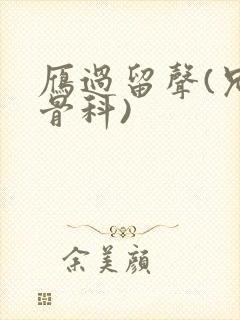 雁過留聲(兄
骨科)
余美顏